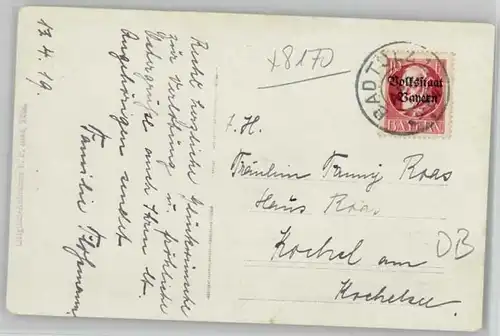 13.4.19.
Recht herzliche Glückwünsche
zur Verlobung u. fröhliche
Ostergrüße auch Ihren lb.
Angehörigen sendet
Familie
x8170
BAD TÖLZ
Volksstaat
Bayern
BAYERN
I. H.
Fräulein Fanny Roas
Haus Roas
Kochel am
Kochelsee
DB